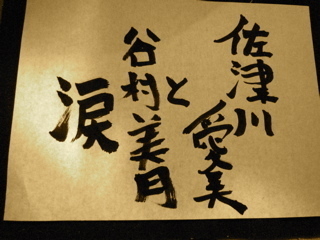 佐津川
愛美
と
谷村美月
涙